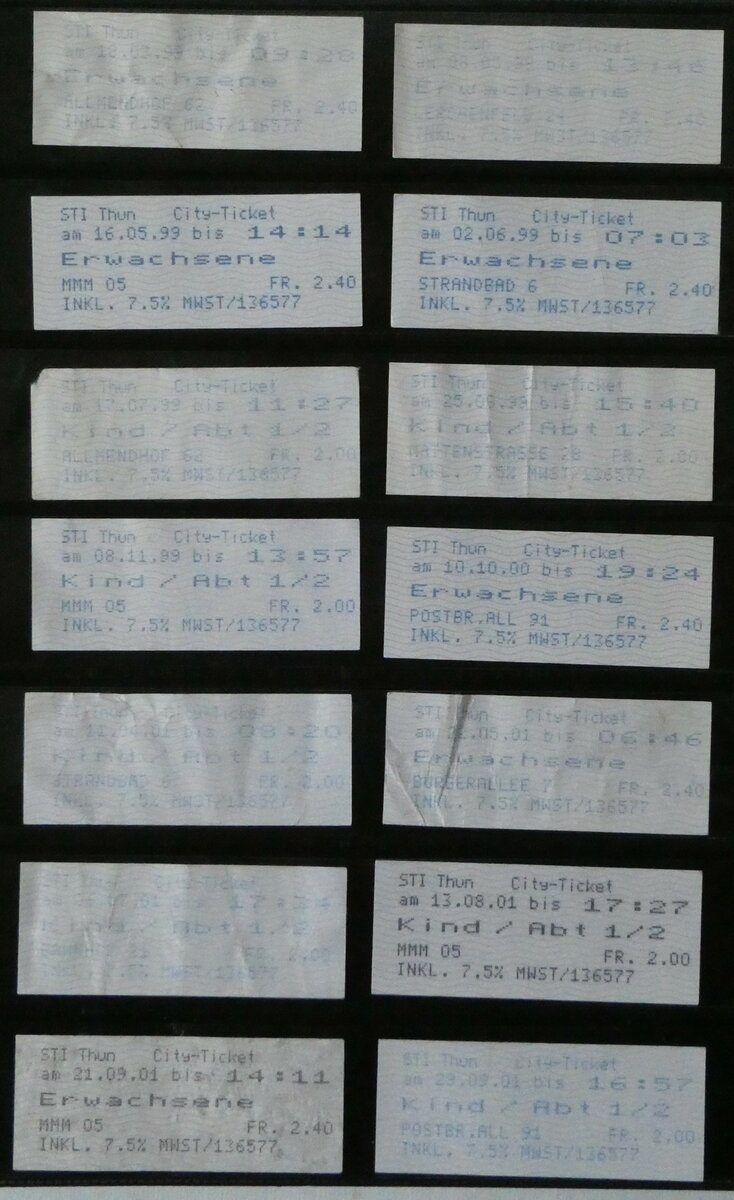 STI Thun City-Ticket
am 18.03.99 bis 09:28
Erwachsene
ALLMENDHOF 62 FR. 2.40
INKL. 7.5% MWST/136577
STI Thun City-Ticket
am bis 13:46
Erwachsene
LERCHENFELD 24 FR. 2.40
INKL. 7.5% MWST/136577
STI Thun City-Ticket
am 16.05.99 bis 14:14
Erwachsene
MMM 05 FR. 2.40
INKL. 7.5% MWST/136577
STI Thun City-Ticket
am 02.06.99 bis 07:03
Erwachsene
STRANDBAD 6 FR. 2.40
INKL. 7.5% MWST/136577
STI Thun City-Ticket
am bis 11:27
Kind / Abt 1/2
ALLMENDHOF 62 FR. 2.00
INKL. 7.5% MWST/136577
STI Thun City-Ticket
am bis 15:40
Kind / Abt 1/2
MATTENSTRASSE 28 FR. 2.00
INKL. 7.5% MWST/136577
STI Thun City-Ticket
am 08.11.99 bis 13:57
Kind / Abt 1/2
MMM 05 FR. 2.00
INKL. 7.5% MWST/136577
STI Thun City-Ticket
am 10.10.00 bis 19:24
Erwachsene
POSTBR.ALL 91 FR. 2.40
INKL. 7.5% MWST/136577
STI Thun City-Ticket
am 11.04.01 bis 08:20
Kind / Abt 1/2
STRANDBAD 6 FR. 2.00
INKL. 7.5% MWST/136577
STI Thun City-Ticket
am bis 06:46
Erwachsene
BÜRGERALLEE 7 FR. 2.40
INKL. 7.5% MWST/136577
STI Thun City-Ticket
am bis 17:34
Kind / Abt 1/2
FR. 2.00
STI Thun City-Ticket
am 13.08.01 bis 17:27
Kind / Abt 1/2
MMM 05 FR. 2.00
INKL. 7.5% MWST/136577
STI Thun City-Ticket
am 21.09.01 bis 14:11
Erwachsene
MMM 05 FR. 2.40
INKL. 7.5% MWST/136577
STI Thun City-Ticket
am 29.09.01 bis 16:57
Kind / Abt 1/2
POSTBR.ALL 91 FR. 2.00
INKL. 7.5% MWST/136577